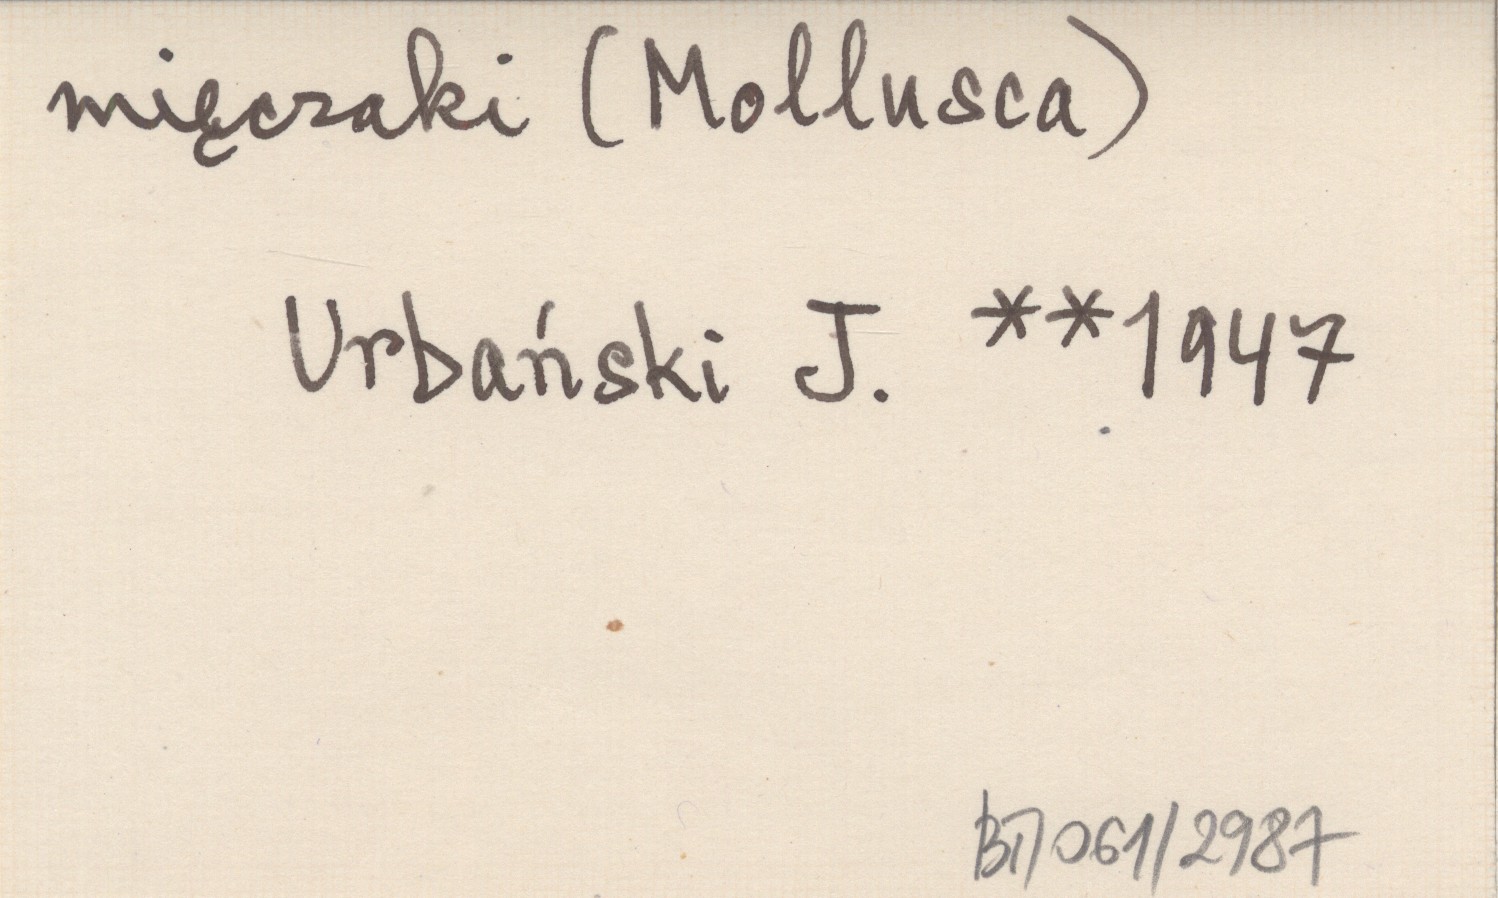 mięczaki (Mollusca)
Urbański J. **1947
BT/061/2987